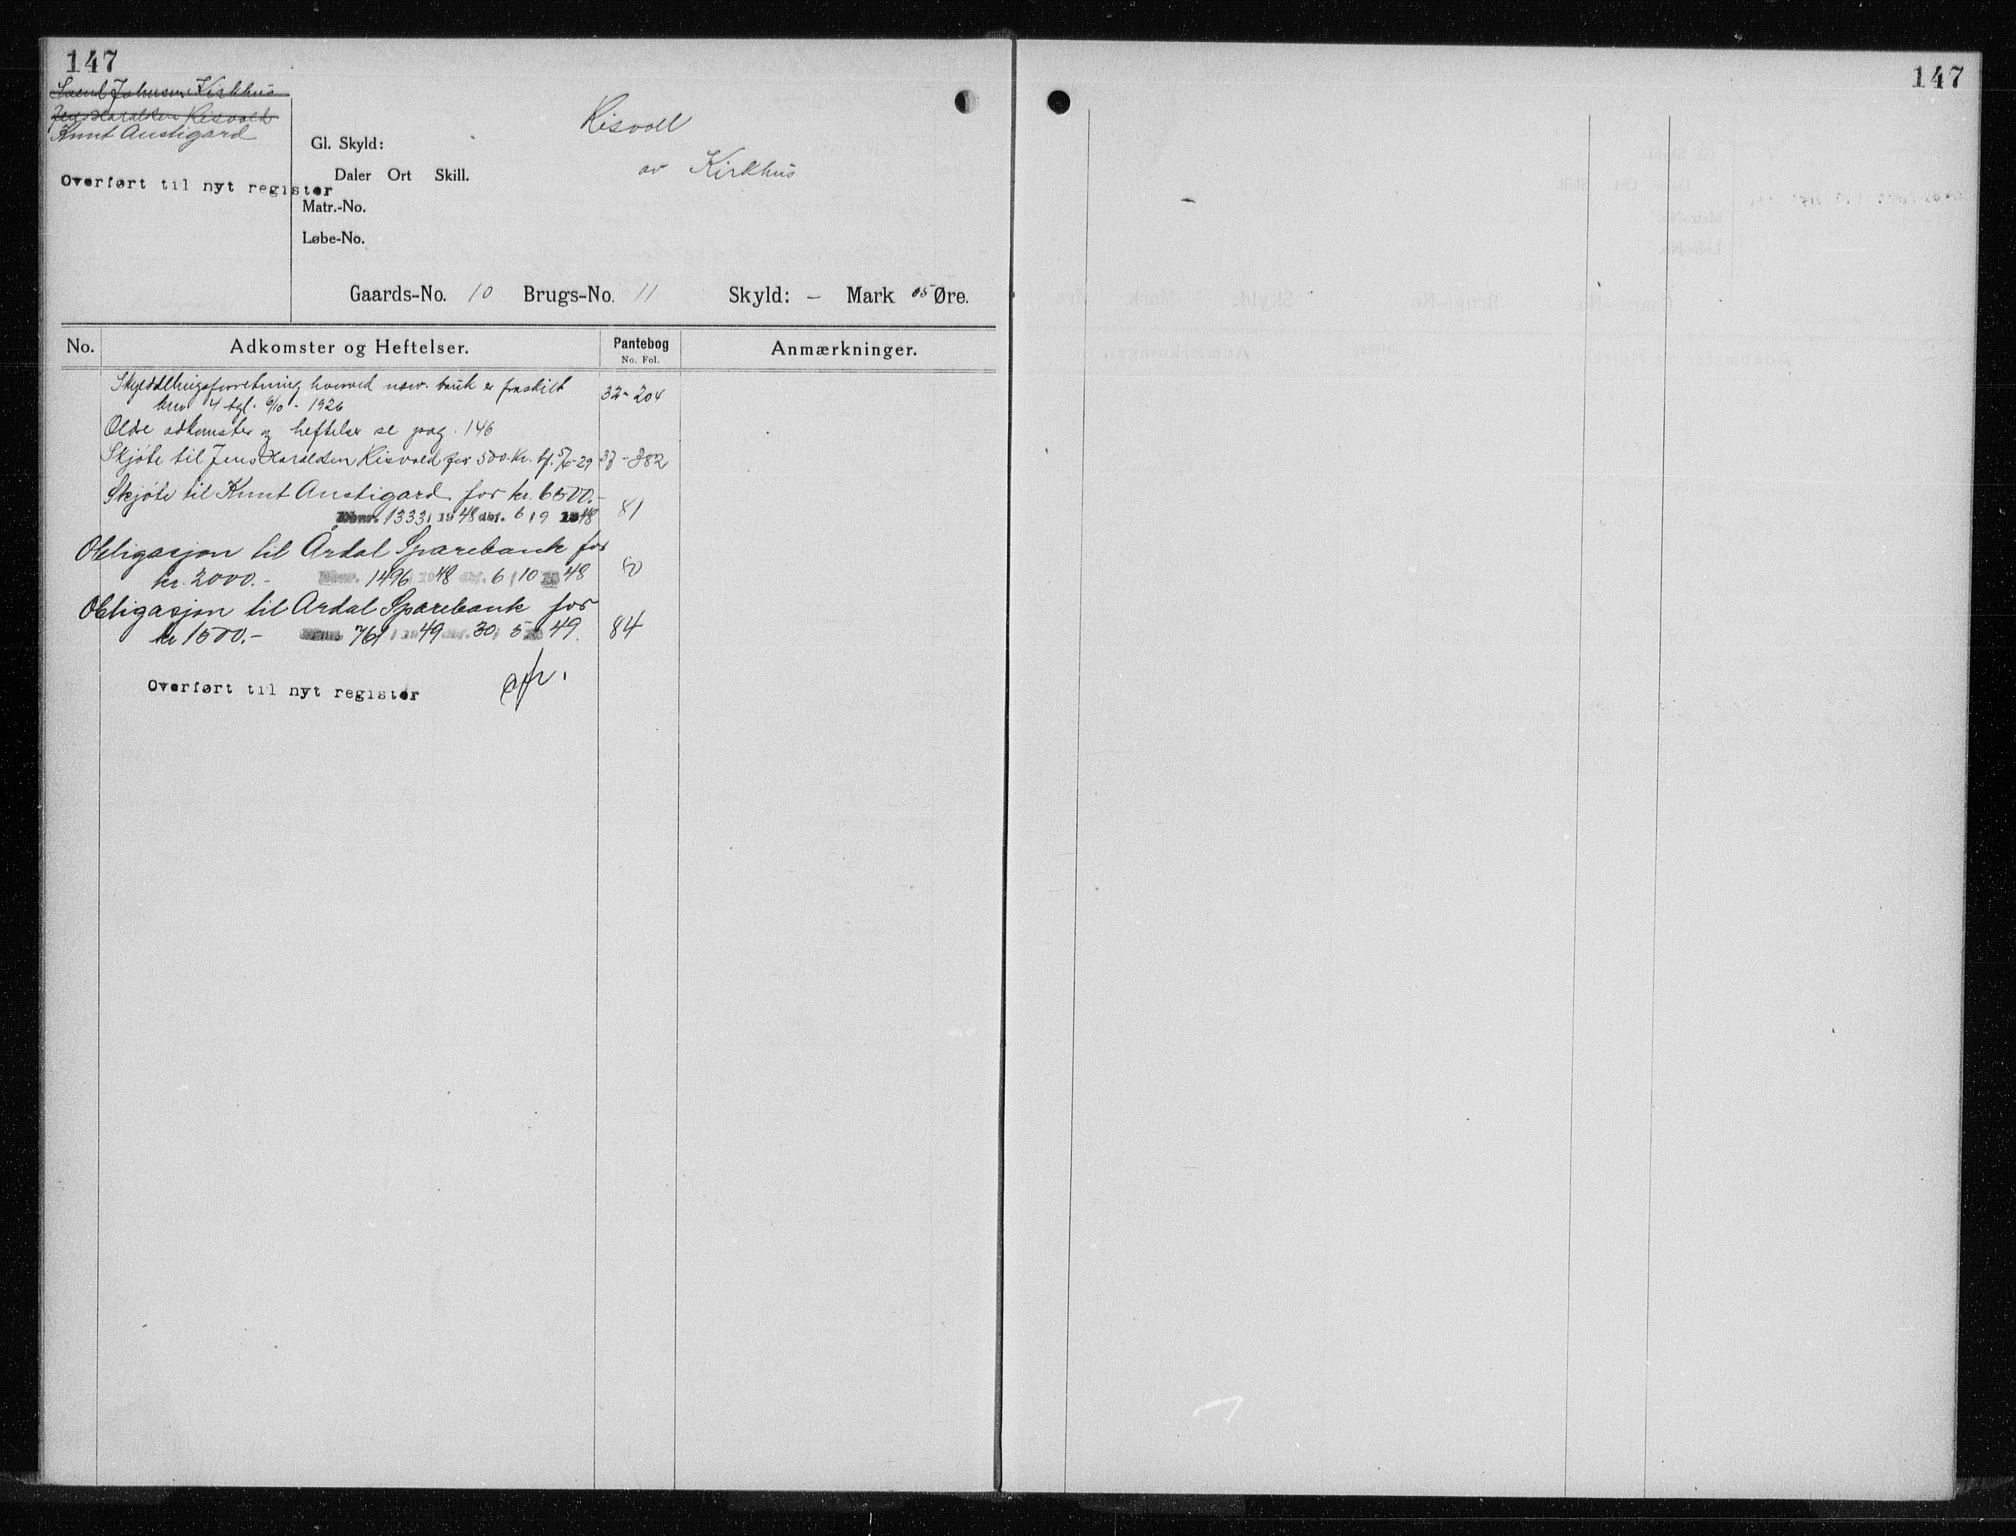 147
147
Svend Johnsen Kirkhus
Jens Haraldsen Risvold
Knut Austigard
Risvoll
Gl. Skyld:
av Kirkhus
Daler Ort Skill.
Overført til nyt register
Matr.-No.
Løbe-No.
Gaards-No. 10 Brugs-No. 11 Skyld: – Mark 05 Øre.
No. Adkomster og Heftelser. Pantebog Anmærkninger.
No. Fol.
Skylddelingsforretning hvorved nærv. bruk er fraskilt 32-204
bnr 4 tgl. 6/10 - 1926
Eldre adkomster og heftelser se pag. 146
Skjøte til Jens Haraldsen Risvold for 500 Kr. tgl. 5/6-29 - 382
Skjøte til Knut Austigard for kr. 6500.-
1333 1948 dbf. 6/9 1948 81
Obligasjon til Årdal Sparebank for
kr. 2000.- 1496 1948 dbf. 6/10 48 80
Obligasjon til Årdal Sparebank for
kr 1500.- 761 1949 dbf. 30/5 49. 84
Overført til nyt register